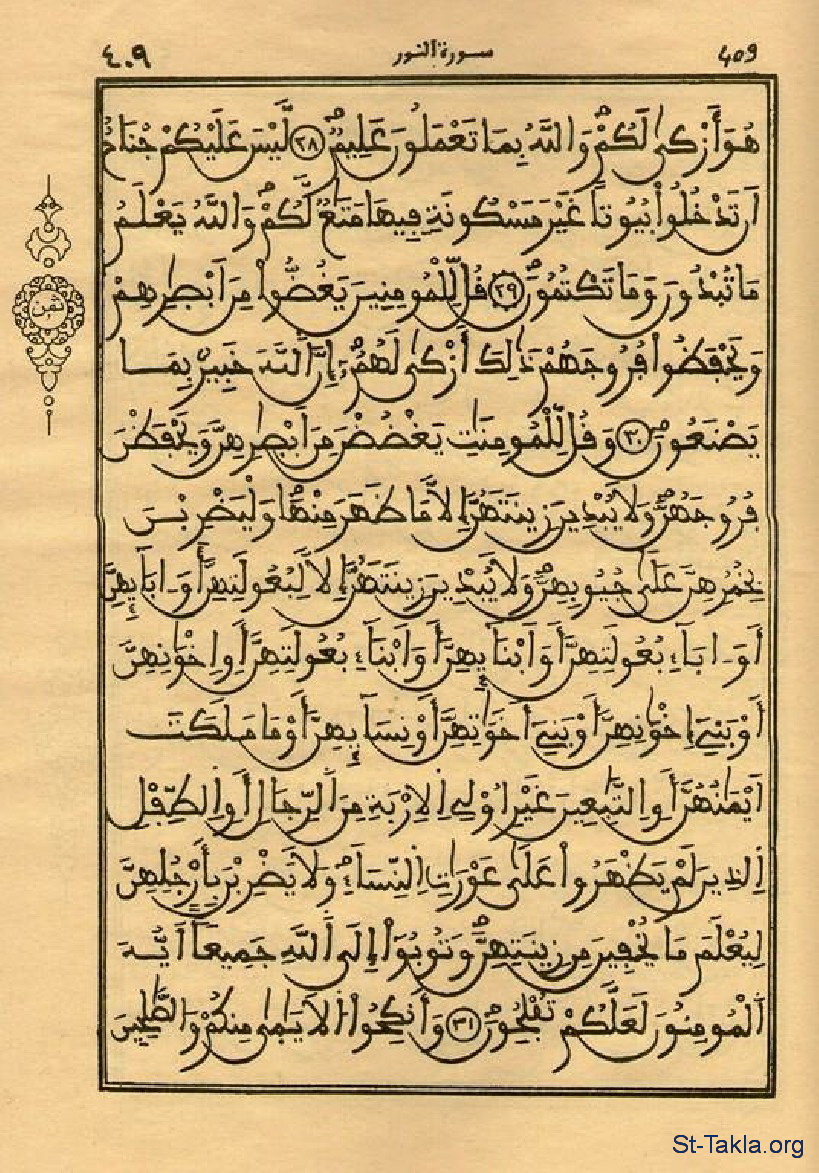 409 سورة النور ٤٠٩
هُوَ أَزْكىٰ لَكُمْ وَاللَّهُ بِمَا تَعْمَلُونَ عَلِيمٌ ٢٨ لَّيْسَ عَلَيْكُمْ جُنَاحٌ
اَن تَدْخُلُواْ بُيُوتاً غَيْرَ مَسْكُونَةٍ فِيهَا مَتَٰعٌ لَّكُمْ وَاللَّهُ يَعْلَمُ
مَا تُبْدُونَ وَمَا تَكْتُمُونَ ٢٩ قُل لِّلْمُومِنِينَ يَغُضُّواْ مِنَ اَبْصٰرِهِمْ
ثمن
وَيَحْفَظُواْ فُرُوجَهُمْ ذَٰلِكَ أَزْكىٰ لَهُمُۥٓ إِنَّ اَللَّهَ خَبِيرٌ بِمَا
يَصْنَعُونَ ٣٠ وَقُل لِّلْمُومِنَٰتِ يَغْضُضْنَ مِنَ اَبْصٰرِهِنَّ وَيَحْفَظْنَ
فُرُوجَهُنَّ وَلَا يُبْدِينَ زِينَتَهُنَّ إِلاَّ مَا ظَهَرَ مِنْهَا وَلْيَضْرِبْنَ
بِخُمُرِهِنَّ عَلَىٰ جُيُوبِهِنَّ وَلَا يُبْدِينَ زِينَتَهُنَّ إِلاَّ لِبُعُولَتِهِنَّ أَوَ اٰبَآئِهِنَّ
أَوَ اٰبَآءِ بُعُولَتِهِنَّ أَوَ اَبْنَآئِهِنَّ أَوَ اَبْنَآءِ بُعُولَتِهِنَّ أَوِ اِخْوَٰنِهِنَّ
أَوْ بَنِےٓ إِخْوَٰنِهِنَّ أَوْ بَنِےٓ أَخَوَٰتِهِنَّ أَوْ نِسَآئِهِنَّ أَوْ مَا مَلَكَتَ
اَيْمَٰنُهُنَّ أَوِ اِلتَّٰبِعِينَ غَيْرِ أُوْلِے اِلِارْبَةِ مِنَ اَلرِّجَالِ أَوِ اِلطِّفْلِ
اِلذِينَ لَمْ يَظْهَرُواْ عَلَىٰ عَوْرَٰتِ اِلنِّسَآءِ وَلَا يَضْرِبْنَ بِأَرْجُلِهِنَّ
لِيُعْلَمَ مَا يُخْفِينَ مِن زِينَتِهِنَّ وَتُوبُوٓاْ إِلَى اَللَّهِ جَمِيعاً اَيُّهَ
اَلْمُومِنُونَ لَعَلَّكُمْ تُفْلِحُونَ ٣١ وَأَنكِحُواْ اُلَايَٰمىٰ مِنكُمْ وَالصَّٰلِحِينَ
St-Takla.org